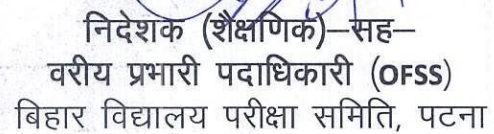 निदेशक (शैक्षणिक)–सह–
वरीय प्रभारी पदाधिकारी (OFSS)
बिहार विद्यालय परीक्षा समिति, पटना